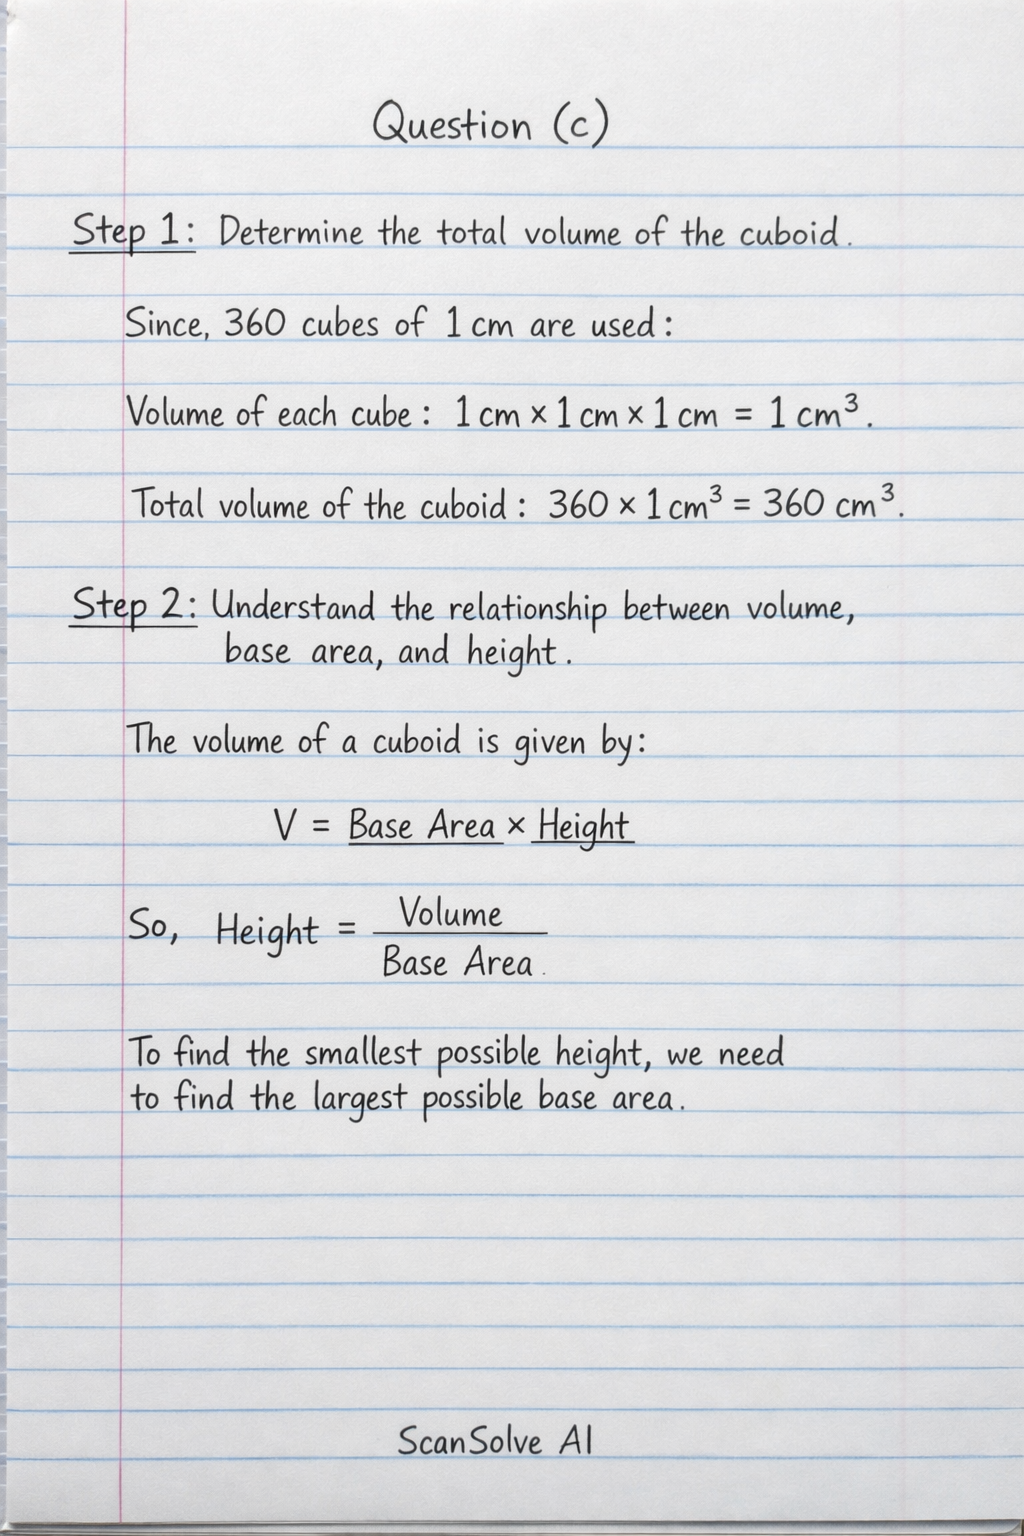 Question (c)
Step 1: Determine the total volume of the cuboid.
Since, 360 cubes of 1 cm are used:
Volume of each cube: 1 cm × 1 cm × 1 cm = 1 cm³.
Total volume of the cuboid: 360 × 1 cm³ = 360 cm³.
Step 2: Understand the relationship between volume,
base area, and height.
The volume of a cuboid is given by:
V = Base Area × Height
So, Height = Volume
Base Area.
To find the smallest possible height, we need
to find the largest possible base area.
ScanSolve AI